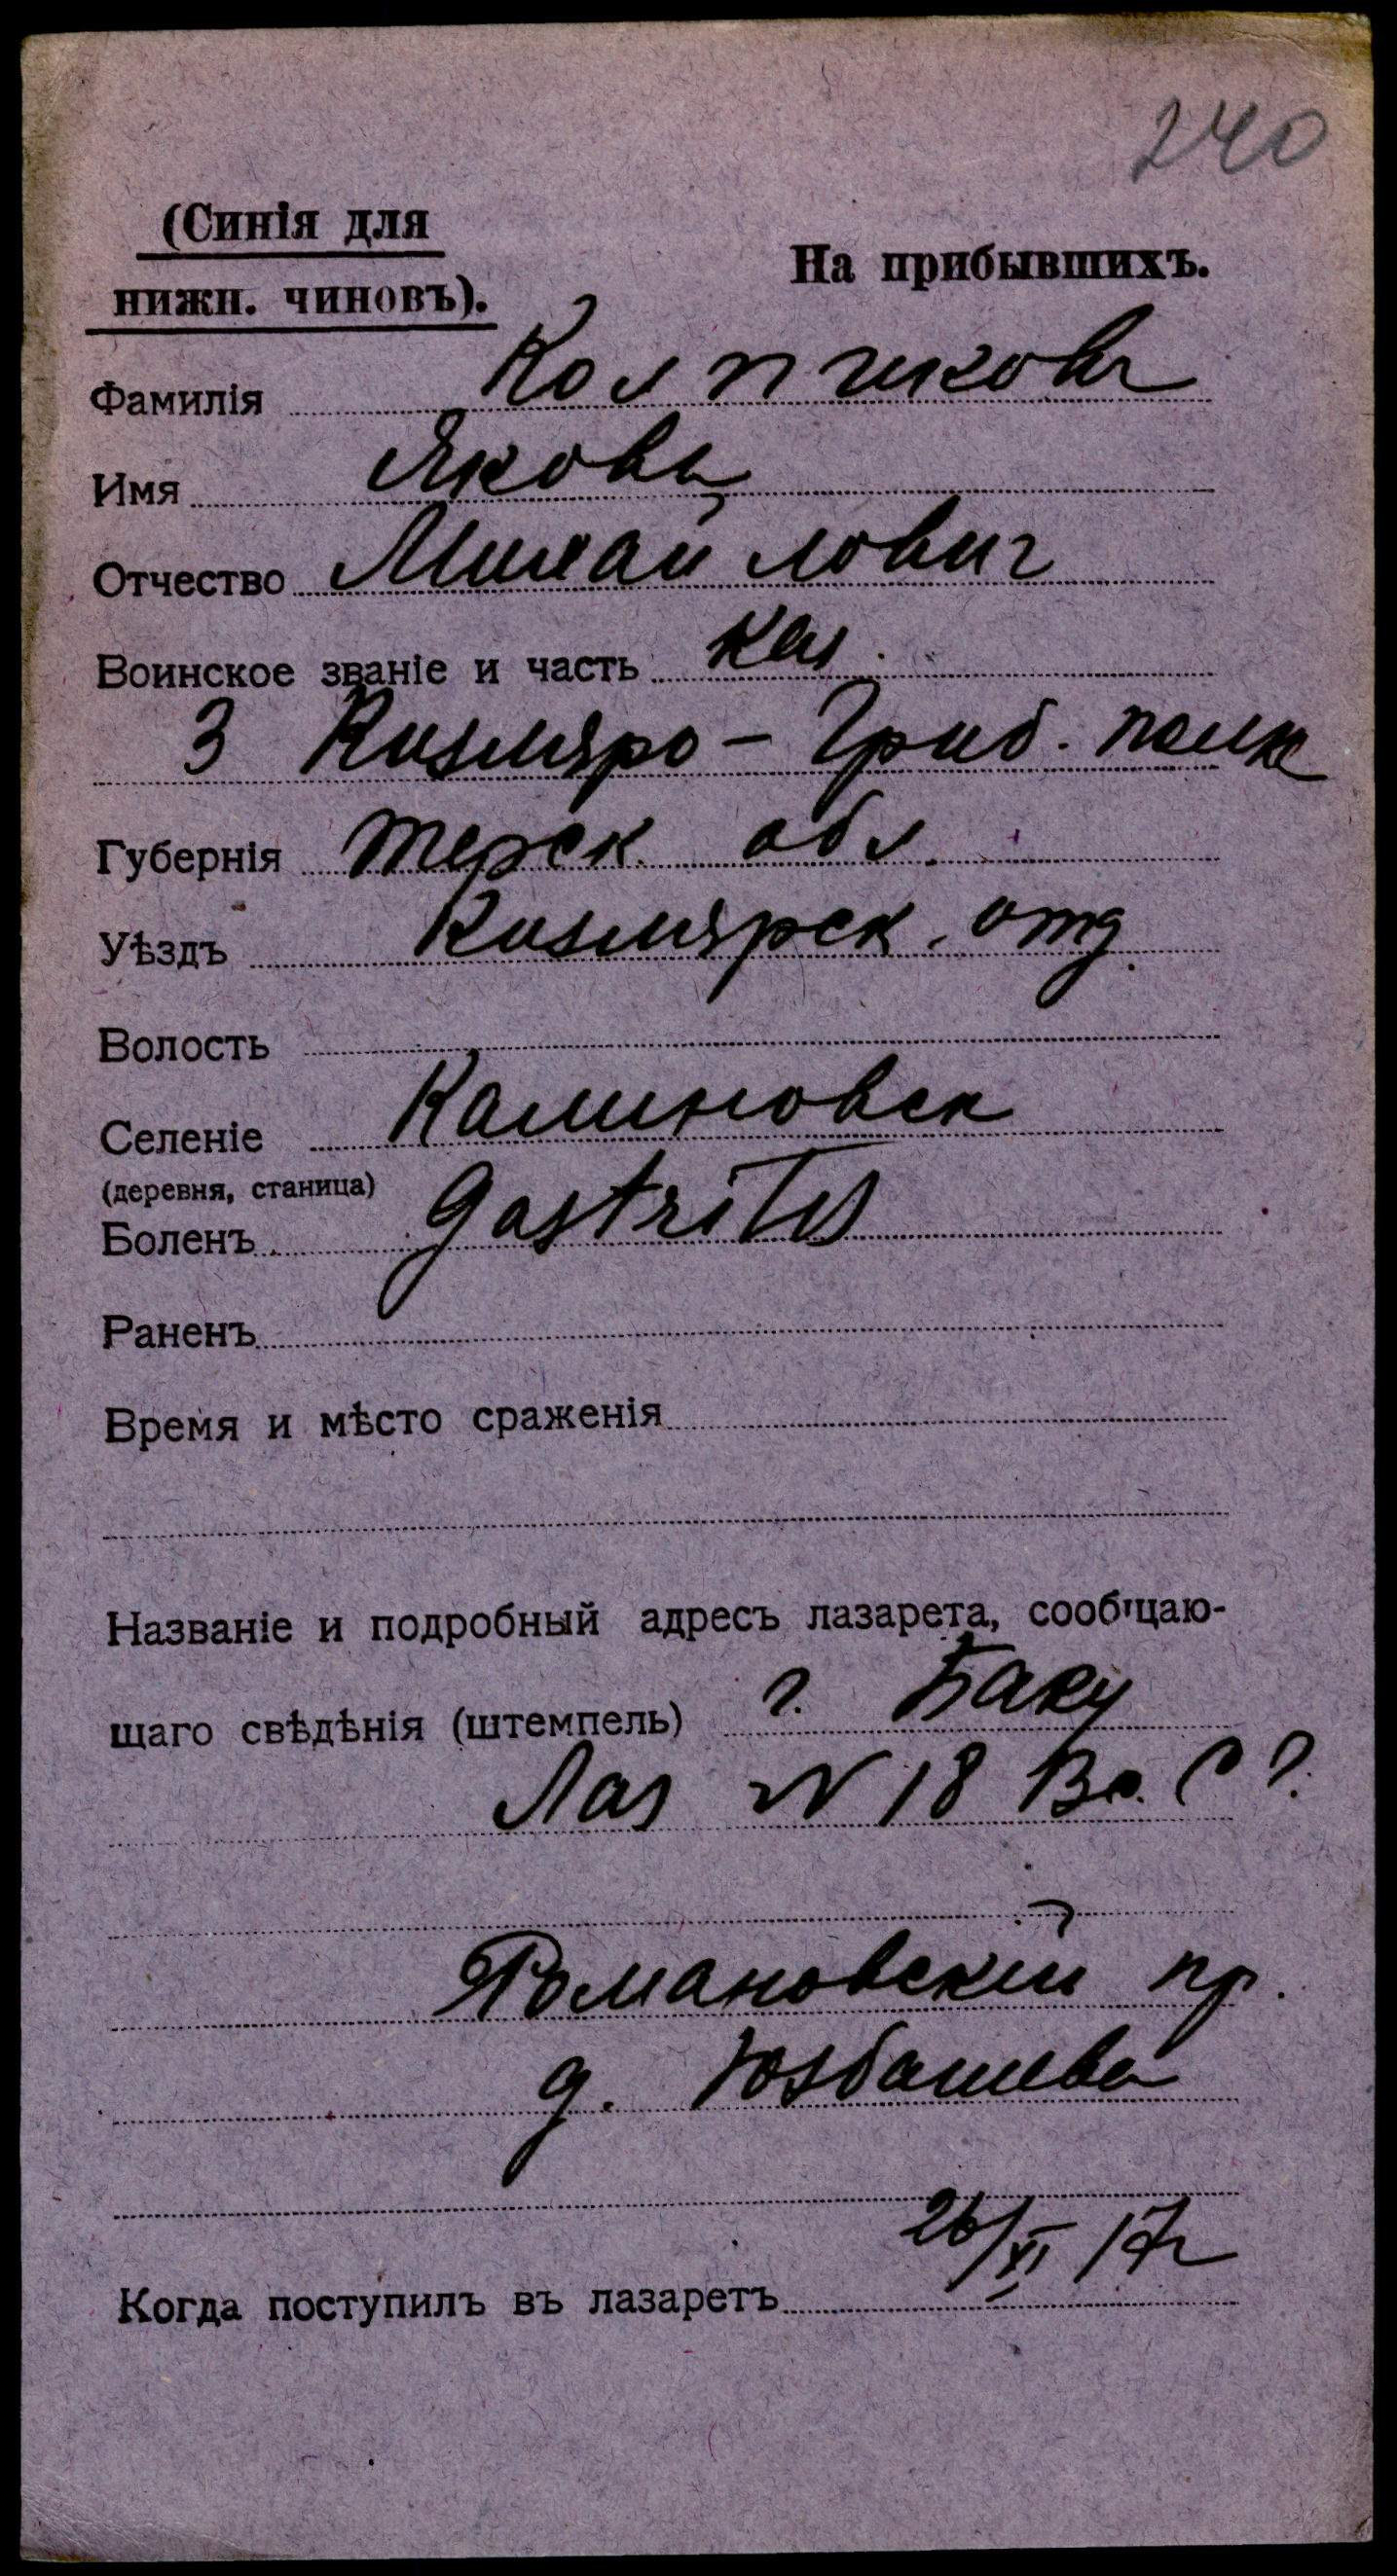 240
(Синія для
нижн. чиновъ).
На прибывшихъ.
Фамилія Колпиковъ
Имя Яковъ
Отчество Михайлович
Воинское званіе и часть каз.
3 Кизляро-Греб. полк
Губернія Терск. обл.
Уѣздъ Кизлярск. отд.
Волость
Селеніе Калиновск
(деревня, станица)
Боленъ gastritis
Раненъ
Время и мѣсто сраженія
Названіе и подробный адресъ лазарета, сообщаю-
щаго свѣдѣнія (штемпель) г. Баку
Лаз № 18 Вс. С Г.
Романовскій пр.
д. Юзбашева
Когда поступилъ въ лазаретъ 26/XI 17 г